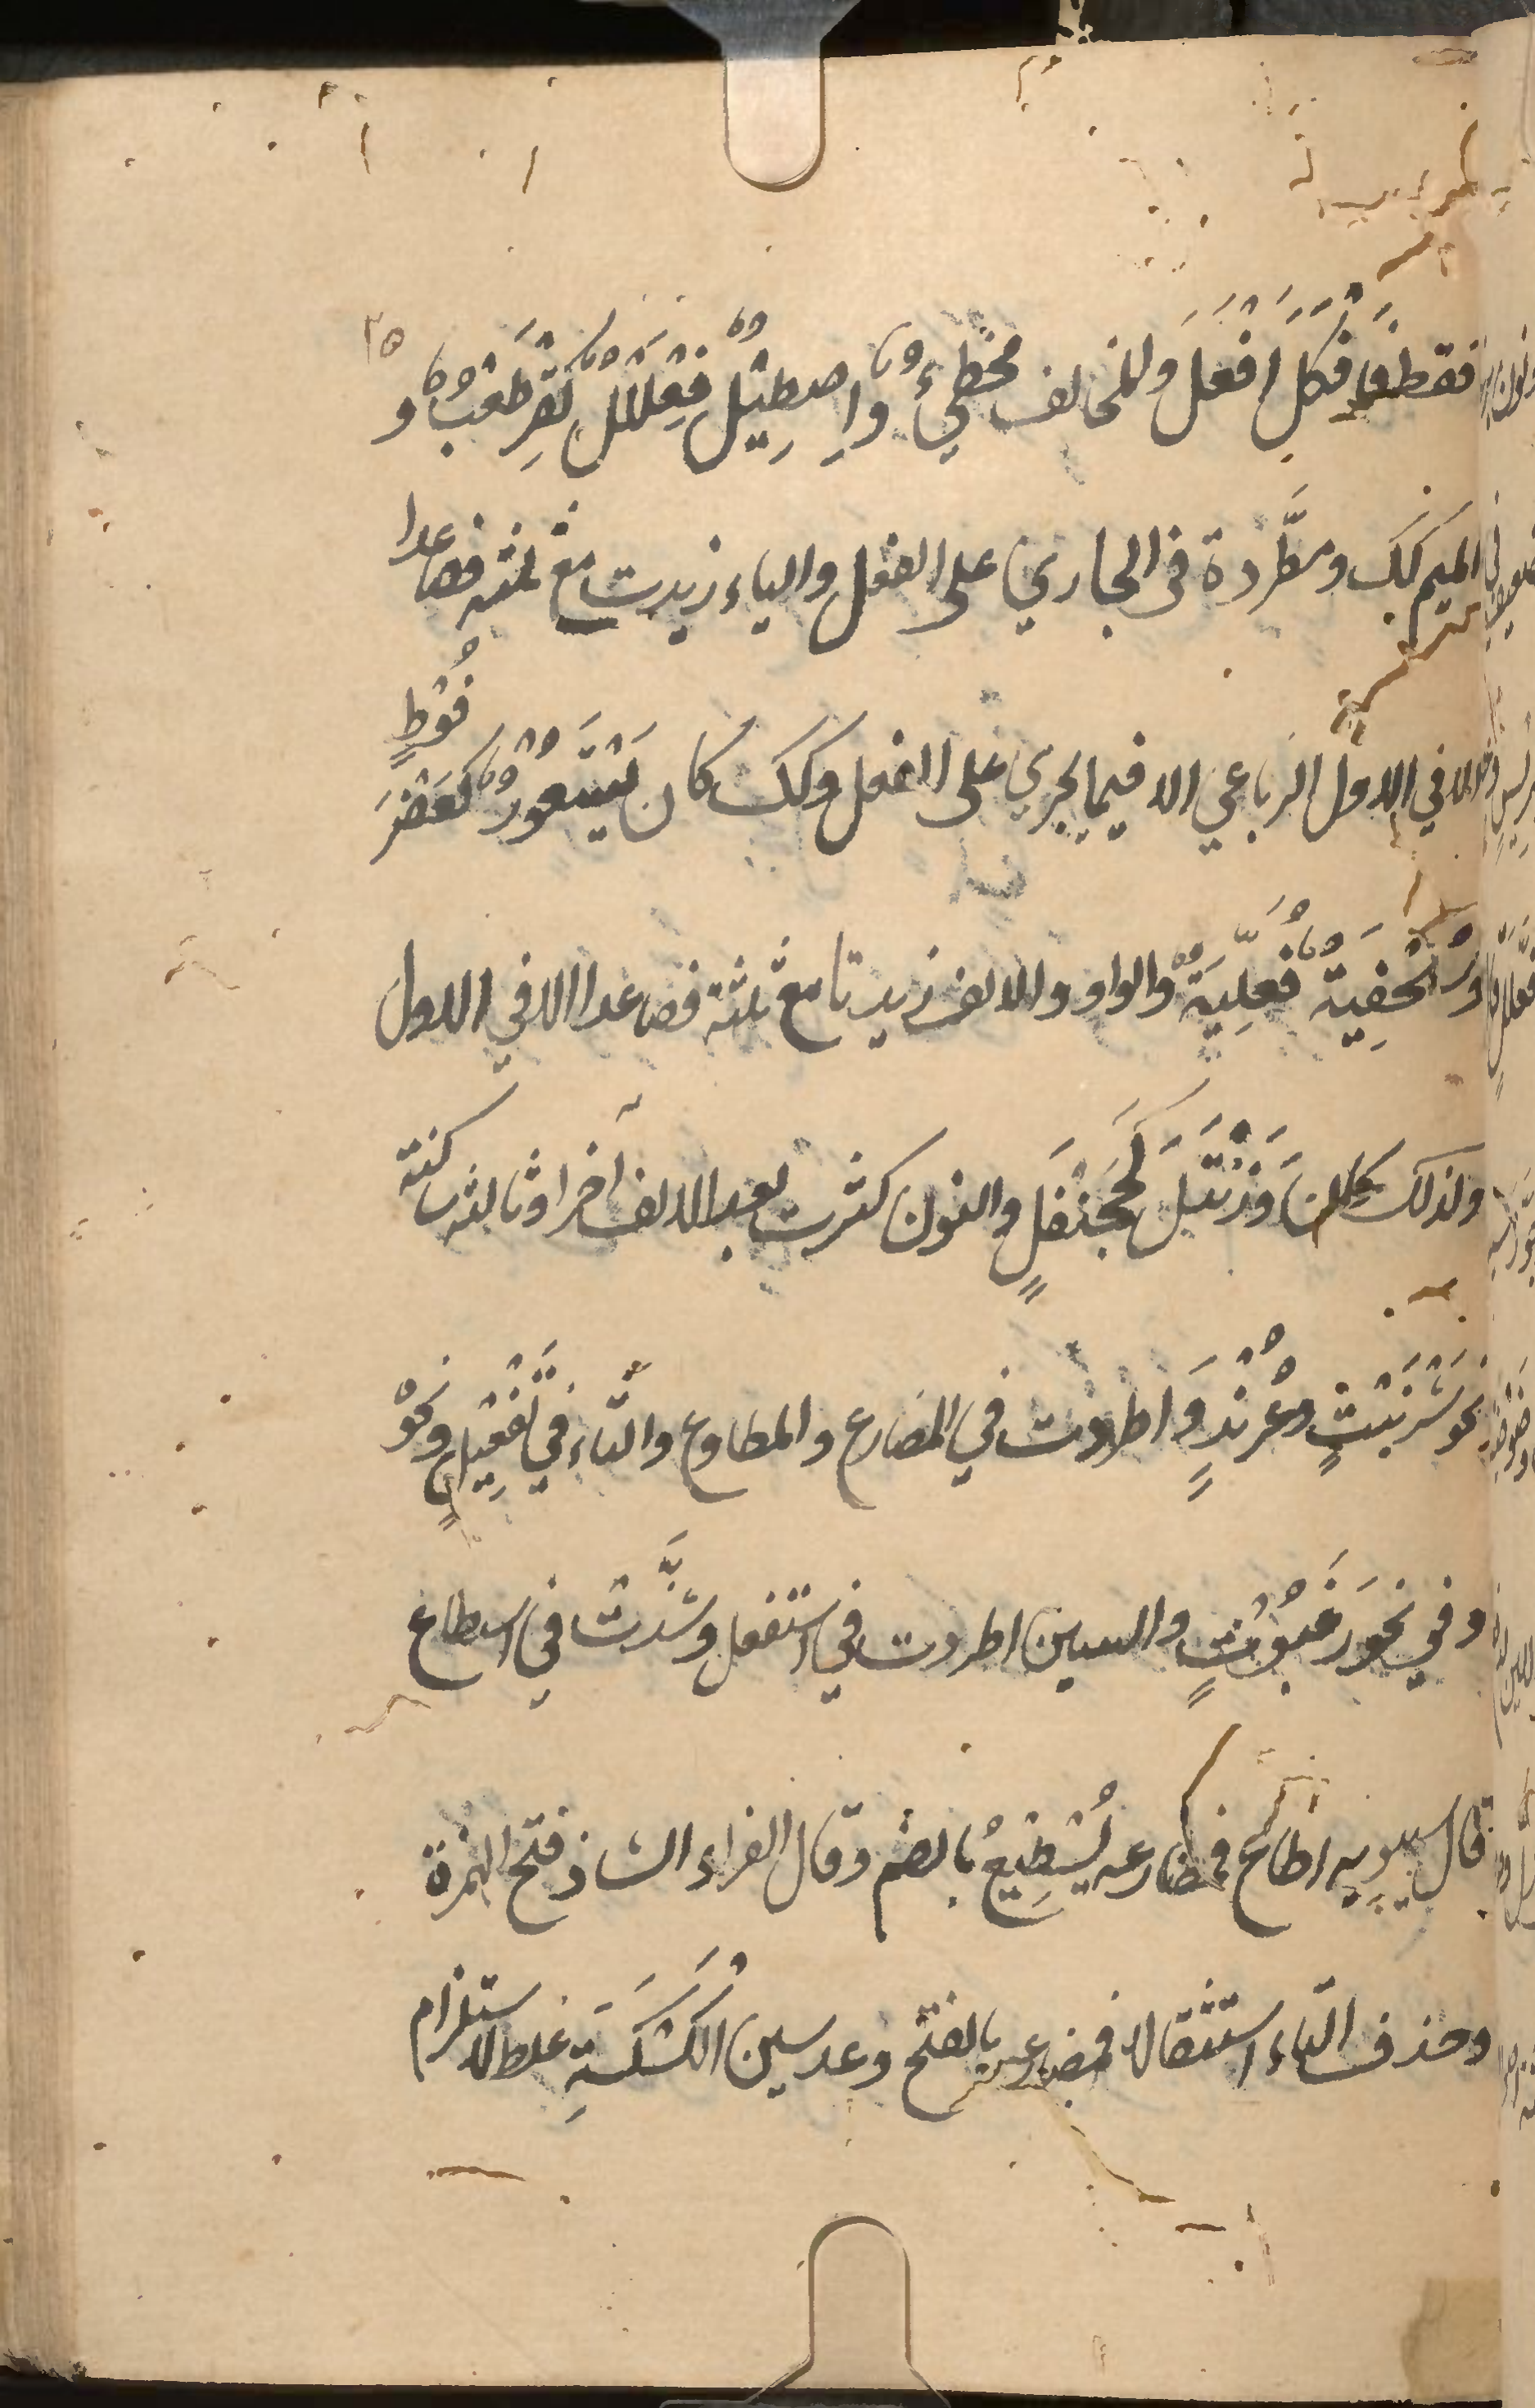 ٣٥
فقط فَأَفْكَلٌ أَفْعَلُ وَالمخالف مخطئٌ وإِصطبْلٌ فِعْلَلٌّ كَقِرْطَعْبٍ و
الميم كك ومطَّردة في الجاري على الفعل والياء زيدت مع ثلثة فصاعدا
الا في الاول الرباعي الا فيما يجري على الفعل وكك كان يَسْتَعُوْرٌ كَعَضْرَ
فُوْطٍ
وسُلَحْفِيَةٌ فُعَلِّيَةٌ والواو والالف زيدتا مع ثلثة فصاعدا الا في الاول
ولذلك كان وَرَنْتَلٌ كَجَحَنْفَلٍ والنون كثرت بعد الالف آخرا وثالثة ساكنة
نحو شَرَنْبَثٍ وعُرُنْدٍ وَاطردت في المضارع والمطاوع والتّاء في تَفْعِيْلٍ ونحوْ
وفي نحو رَغَبُوْتٍ والسين اطردت في استفعل وشذَّتْ في اسطاع
قال سيبويه اطاع فمضارعه يُسْطِيْعُ بالضم وقال الفراء الشاذ فتح الهمزة
وحذف التّاء استثقالا فمضارعه بالفتح وعد سين الكَسْكَسَةِ غلط لاستلزام